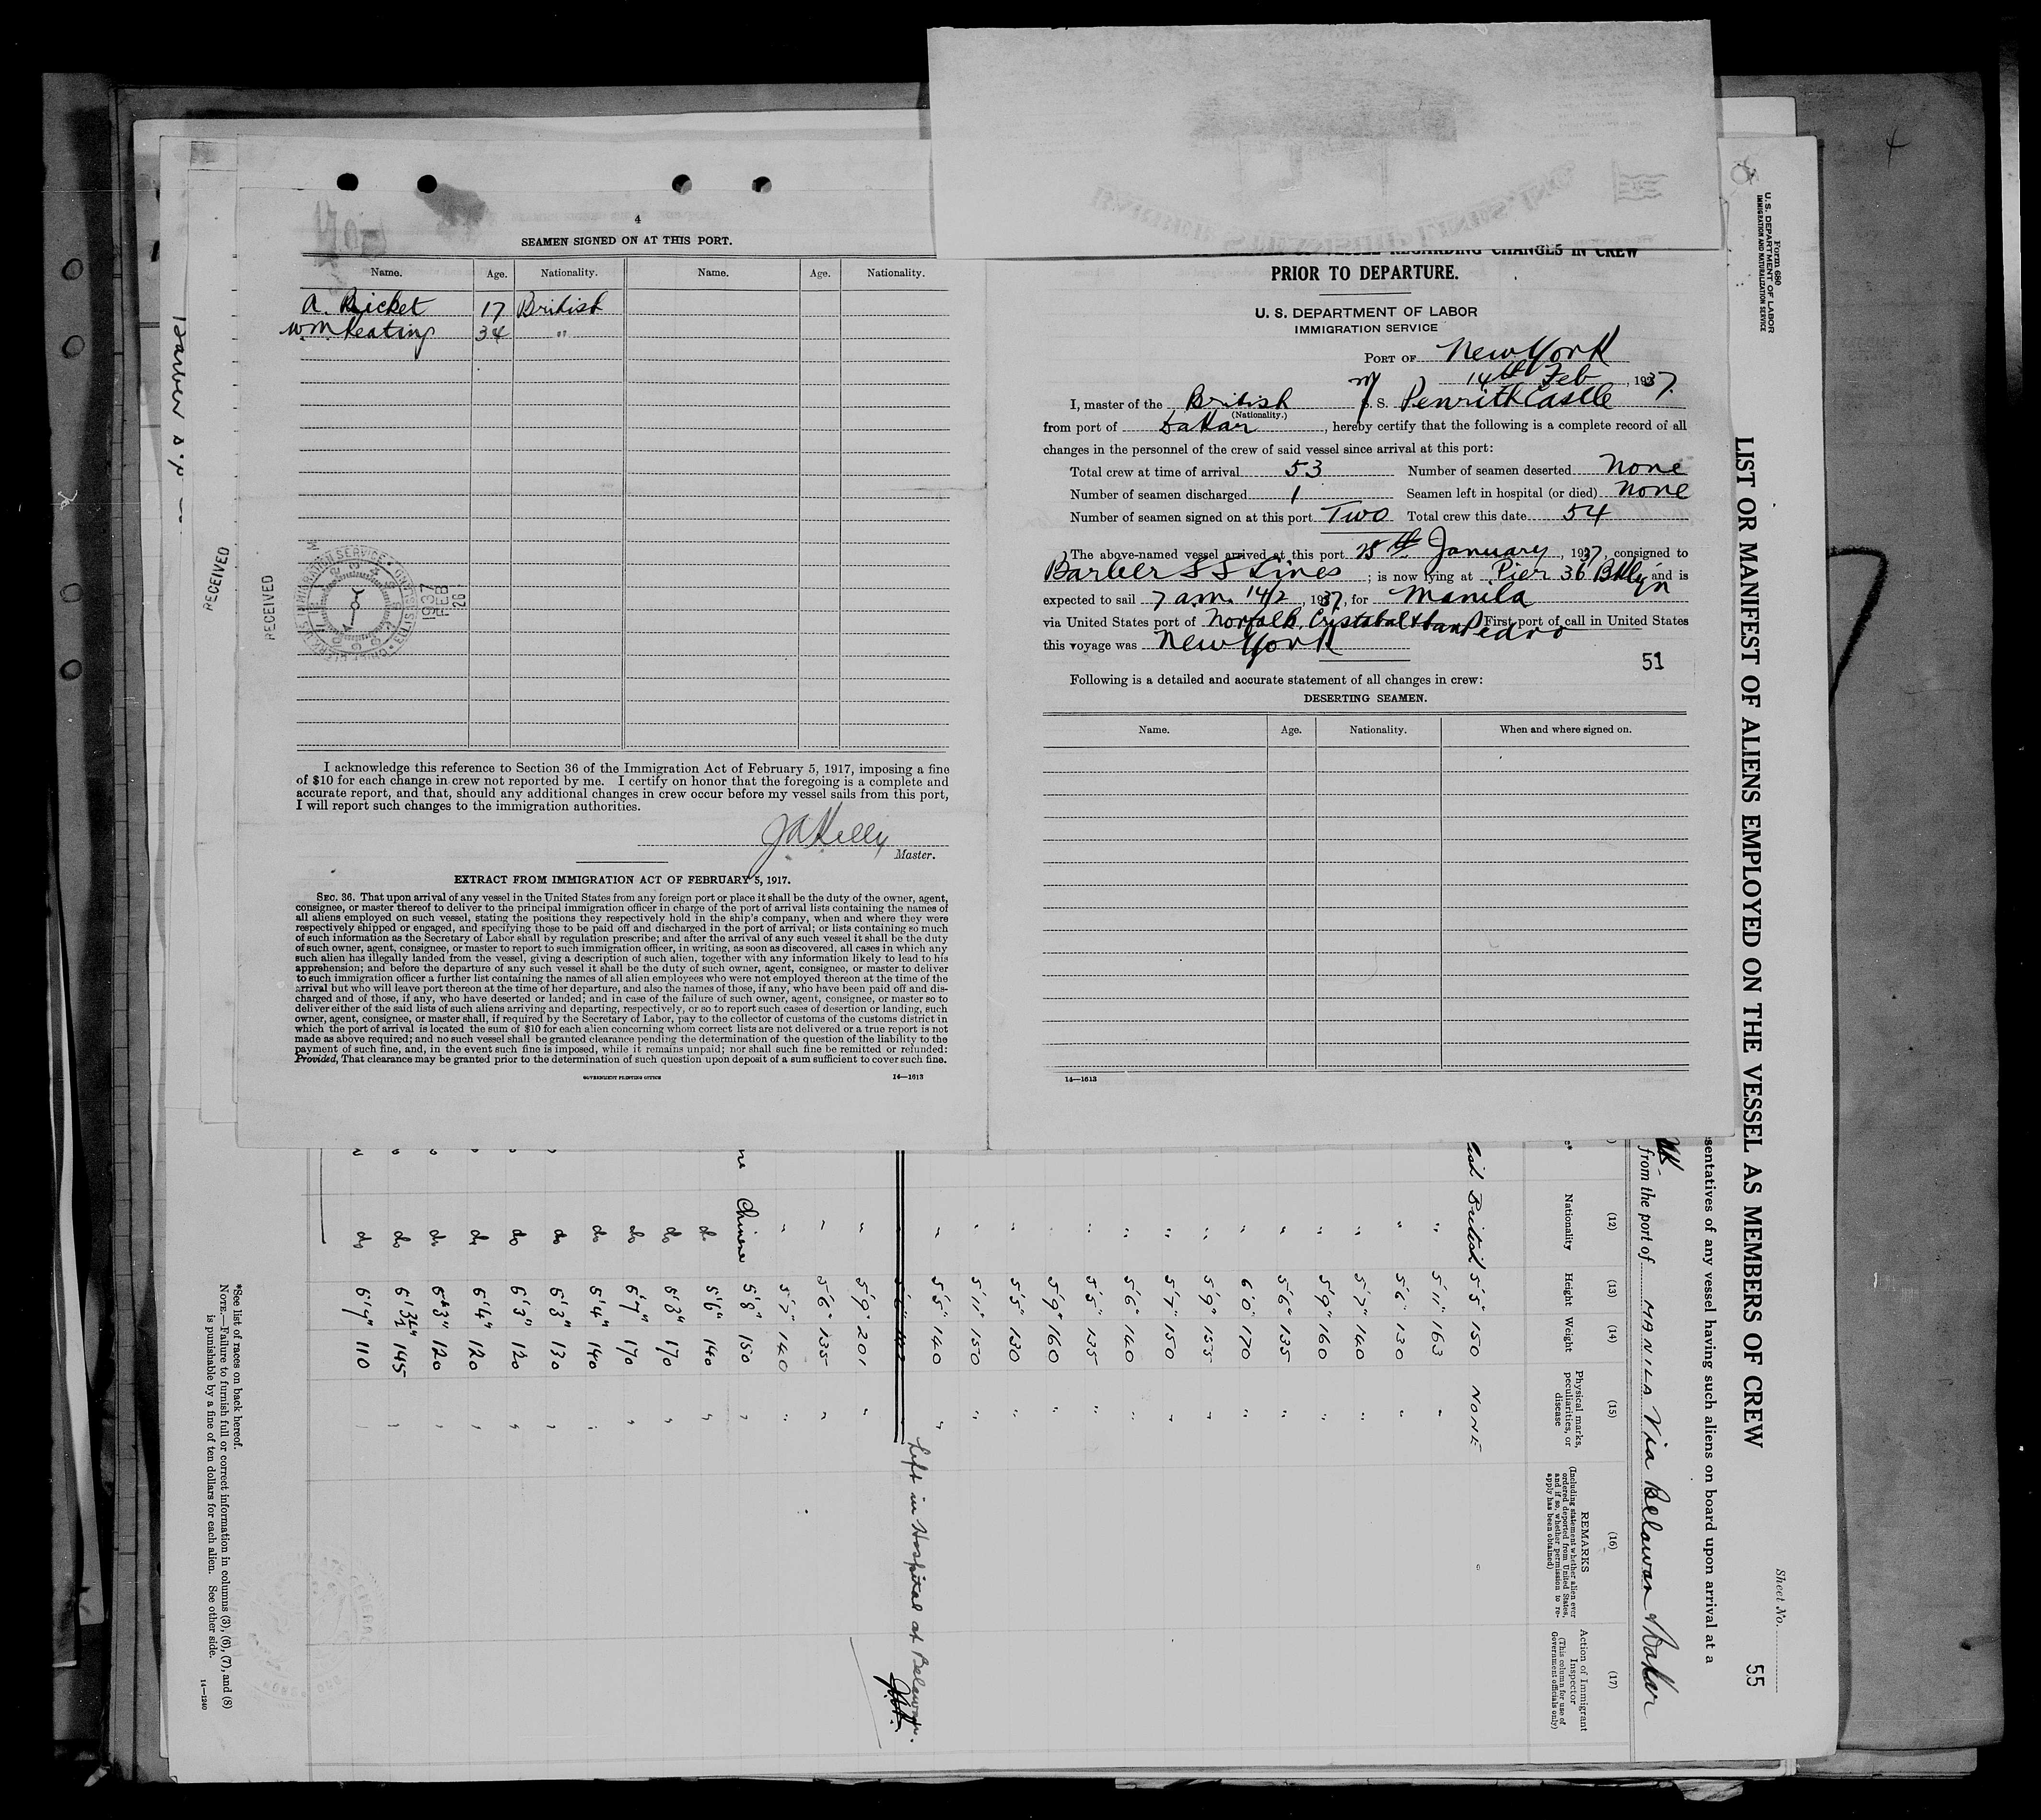 4
SEAMEN SIGNED ON AT THIS PORT.
Name. Age. Nationality. Name. Age. Nationality.
A. Ricket 17 British
Wm. Keating 34 "
RECEIVED
RECEIVED
1937
FEB
26
I acknowledge this reference to Section 36 of the Immigration Act of February 5, 1917, imposing a fine
of $10 for each change in crew not reported by me. I certify on honor that the foregoing is a complete and
accurate report, and that, should any additional changes in crew occur before my vessel sails from this port,
I will report such changes to the immigration authorities.
J A Kelly
Master.
EXTRACT FROM IMMIGRATION ACT OF FEBRUARY 5, 1917.
SEC. 36. That upon arrival of any vessel in the United States from any foreign port or place it shall be the duty of the owner, agent,
consignee, or master thereof to deliver to the principal immigration officer in charge of the port of arrival lists containing the names of
all aliens employed on such vessel, stating the positions they respectively hold in the ship's company, when and where they were
respectively shipped or engaged, and specifying those to be paid off and discharged in the port of arrival; or lists containing so much
of such information as the Secretary of Labor shall by regulation prescribe; and after the arrival of any such vessel it shall be the duty
of such owner, agent, consignee, or master to report to such immigration officer, in writing, as soon as discovered, all cases in which any
such alien has illegally landed from the vessel, giving a description of such alien, together with any information likely to lead to his
apprehension; and before the departure of any such vessel it shall be the duty of such owner, agent, consignee, or master to deliver
to such immigration officer a further list containing the names of all alien employees who were not employed thereon at the time of the
arrival but who will leave port thereon at the time of her departure, and also the names of those, if any, who have been paid off and dis-
charged and of those, if any, who have deserted or landed; and in case of the failure of such owner, agent, consignee, or master so to
deliver either of the said lists of such aliens arriving and departing, respectively, or so to report such cases of desertion or landing, such
owner, agent, consignee, or master shall, if required by the Secretary of Labor, pay to the collector of customs of the customs district in
which the port of arrival is located the sum of $10 for each alien concerning whom correct lists are not delivered or a true report is not
made as above required; and no such vessel shall be granted clearance pending the determination of the question of the liability to the
payment of such fine, and, in the event such fine is imposed, while it remains unpaid; nor shall such fine be remitted or refunded:
Provided, That clearance may be granted prior to the determination of such question upon deposit of a sum sufficient to cover such fine.
GOVERNMENT PRINTING OFFICE 14—1613
OF VESSEL REGARDING CHANGES IN CREW
PRIOR TO DEPARTURE.
U. S. DEPARTMENT OF LABOR
IMMIGRATION SERVICE
PORT OF New York
14th Feb, 1937.
I, master of the British M S. S. Penrith Castle
(Nationality.)
from port of Dakar, hereby certify that the following is a complete record of all
changes in the personnel of the crew of said vessel since arrival at this port:
Total crew at time of arrival 53 Number of seamen deserted None
Number of seamen discharged 1 Seamen left in hospital (or died) None
Number of seamen signed on at this port Two Total crew this date 54
The above-named vessel arrived at this port 25th January, 1937, consigned to
Barber S S Lines; is now lying at Pier 36 Bklyn and is
expected to sail 7 a.m. 14/2, 1937, for Manila
via United States port of Norfolk, Cristobal & San Pedro First port of call in United States
this voyage was New York
51
Following is a detailed and accurate statement of all changes in crew:
DESERTING SEAMEN.
Name. Age. Nationality. When and where signed on.
14—1613
Form 680
U. S. DEPARTMENT OF LABOR
IMMIGRATION AND NATURALIZATION SERVICE
Sheet No.
55
LIST OR MANIFEST OF ALIENS EMPLOYED ON THE VESSEL AS MEMBERS OF CREW
sentatives of any vessel having such aliens on board upon arrival at a
from the port of MANILA Via Belawan & Dakar
(12) (13) (14) (15) (16) (17)
Nationality Height Weight Physical marks, peculiarities, or disease
REMARKS
(Including statement whether alien ever ordered deported from United States, and if so, whether permission to re-apply has been obtained)
Action of Immigrant Inspector
(This column for use of Government officials only)
British 5'5" 150 NONE
" 5'11" 163 "
" 5'6" 130 "
" 5'7" 140 "
" 5'9" 160 "
" 5'6" 135 "
" 6'0" 170 "
" 5'9" 155 "
" 5'7" 150 "
" 5'6" 140 "
" 5'5" 135 "
" 5'9" 160 "
" 5'5" 130 "
" 5'11" 150 "
" 5'5" 140 "
Left in Hospital at Belawan.
" 5'9" 201 "
" 5'6" 135 "
" 5'7" 140 "
Chinese 5'8" 150 "
do 5'6" 140 "
do 5'8" 170 "
do 5'7" 170 "
do 5'4" 140 "
do 5'3" 130 "
do 5'3" 120 "
do 5'4" 120 "
do 5'3" 120 "
do 5'3½" 145 "
do 5'7" 110
*See list of races on back hereof.
NOTE.—Failure to furnish full or correct information in columns (3), (6), (7), and (8)
is punishable by a fine of ten dollars for each alien. See other side.
14—1240